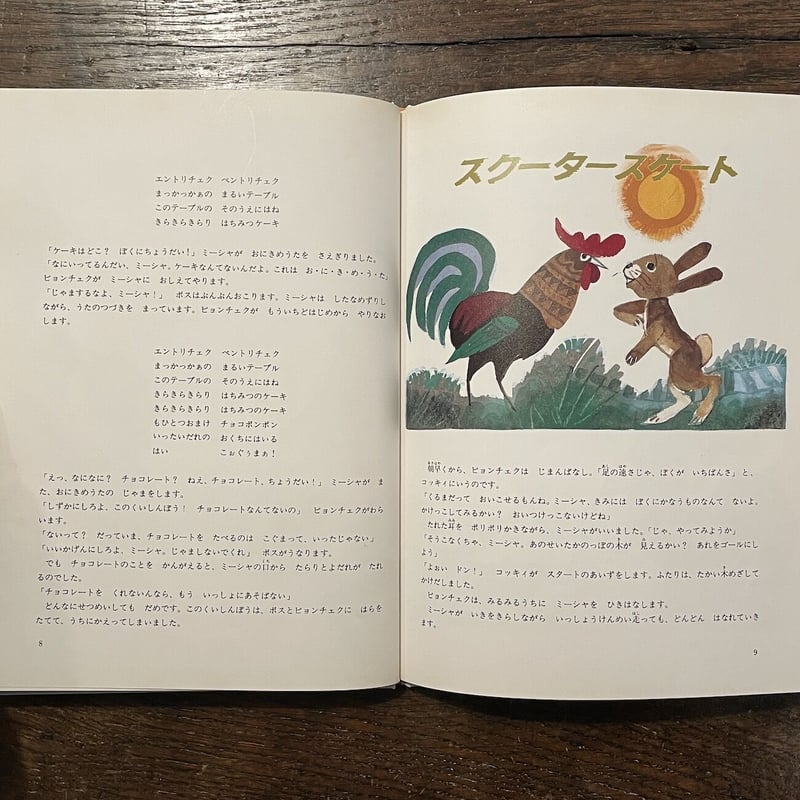 エントリチェク　ベントリチェク
まっかっかぁの　まるいテーブル
このテーブルの　そのうえにはね
きらきらきらり　はちみつケーキ
「ケーキはどこ？　ぼくにちょうだい！」ミーシャが　おにきめうたを　さえぎりました。
「なにいってるんだい、ミーシャ。ケーキなんてないんだよ。これは　お・に・き・め・う・た」
ピョンチェクが　ミーシャに　おしえてやります。
「じゃまするなよ、ミーシャ！」　ボスはぶんぶんおこります。ミーシャは　したなめずりし
ながら、うたのつづきを　まっています。ピョンチェクが　もういちどはじめから　やりなお
します。
エントリチェク　ベントリチェク
まっかっかぁの　まるいテーブル
このテーブルの　そのうえにはね
きらきらきらり　はちみつのケーキ
きらきらきらり　はちみつのケーキ
もひとつおまけ　チョコボンボン
いったいだれの　おくちにはいる
はい　こぉぐぅまぁ！
「えっ、なになに？　チョコレート？　ねえ、チョコレート、ちょうだい！」　ミーシャが　ま
た、おにきめうたの　じゃまをします。
「しずかにしろよ、このくいしんぼう！　チョコレートなんてないの」　ピョンチェクがわら
います。
「ないって？　だっていま、チョコレートを　たべるのは　こぐまって、いったじゃない」
「いいかげんにしろよ、ミーシャ。じゃましないでくれ」　ボスがうなります。
でも　チョコレートのことを　かんがえると、ミーシャの口から　たらりとよだれが　たれ
るのでした。
「チョコレートを　くれないんなら、もう　いっしょにあそばない」
どんなにせつめいしても　だめです。このくいしんぼうは、ボスとピョンチェクに　はらを
たてて、うちにかえってしまいました。
8
スクータースケート
朝早くから、ピョンチェクは　じまんばなし。「足の速さじゃ、ぼくが　いちばんさ」　と、
コッキィにいうのです。
「くるまだって　おいこせるもんね。ミーシャ、きみには　ぼくにかなうものなんて　ないよ。
かけっこしてみるかい？　おいつけっこないけどね」
たれた耳を　ポリポリかきながら、ミーシャがいいました。「じゃ、やってみようか」
「そうこなくちゃ、ミーシャ。あのせいたかのっぽの木が　見えるかい？　あれをゴールにし
よう」
「よぉい　ドン！」　コッキィが　スタートのあいずをします。ふたりは、たかい木めざして
かけだしました。
ピョンチェクは、みるみるうちに　ミーシャを　ひきはなします。
ミーシャが　いきをきらしながら　いっしょうけんめい走っても、どんどん　はなれていき
ます。
9